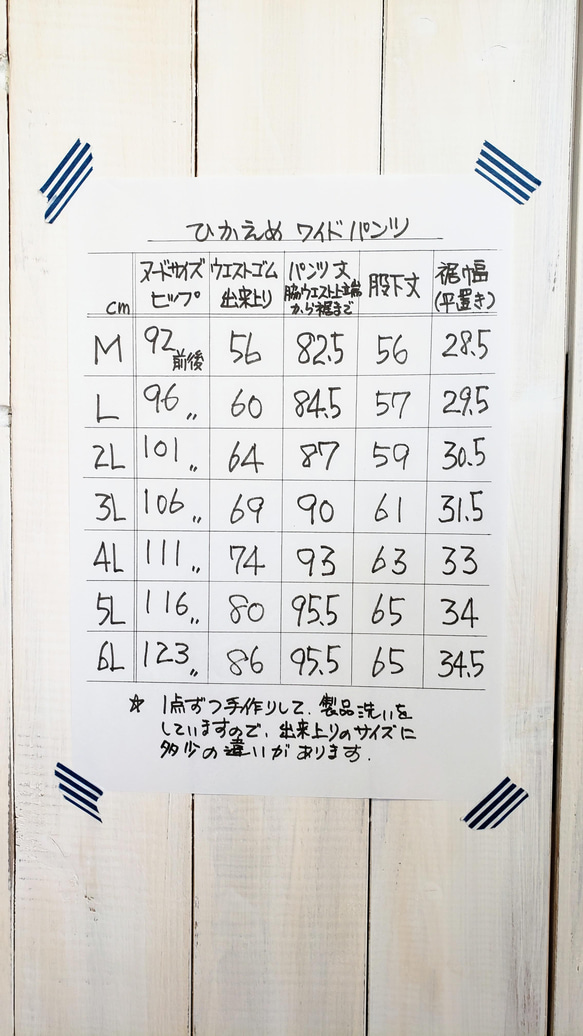 ひかえめ ワイドパンツ
cm ヌードサイズ ヒップ ウエストゴム 出来上り パンツ丈 脇ウエスト上端から裾まで 股下丈 裾巾幅 (平置き)
M 92 前後 56 82.5 56 28.5
L 96 〃 60 84.5 57 29.5
2L 101 〃 64 87 59 30.5
3L 106 〃 69 90 61 31.5
4L 111 〃 74 93 63 33
5L 116 〃 80 95.5 65 34
6L 123 〃 86 95.5 65 34.5
☆ 1点ずつ手作りして、製品洗いを
していますので、出来上りのサイズに
多少の違いがあります.